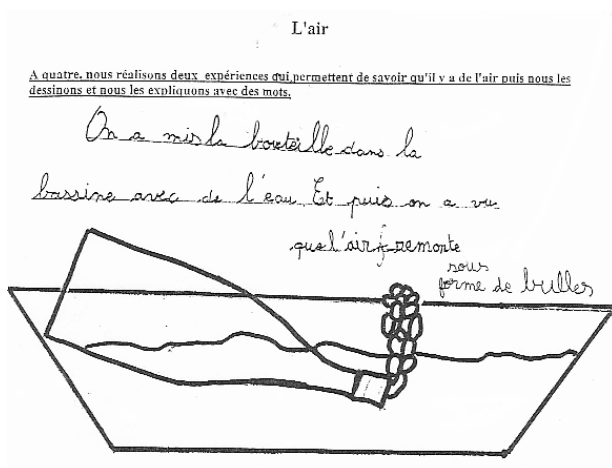 L'air
A quatre, nous réalisons deux expériences qui permettent de savoir qu'il y a de l'air puis nous les
dessinons et nous les expliquons avec des mots.
On a mis la bouteille dans la
bassine avec de l'eau Et puis on a vu
que l'air remonte
sous
forme de bulles